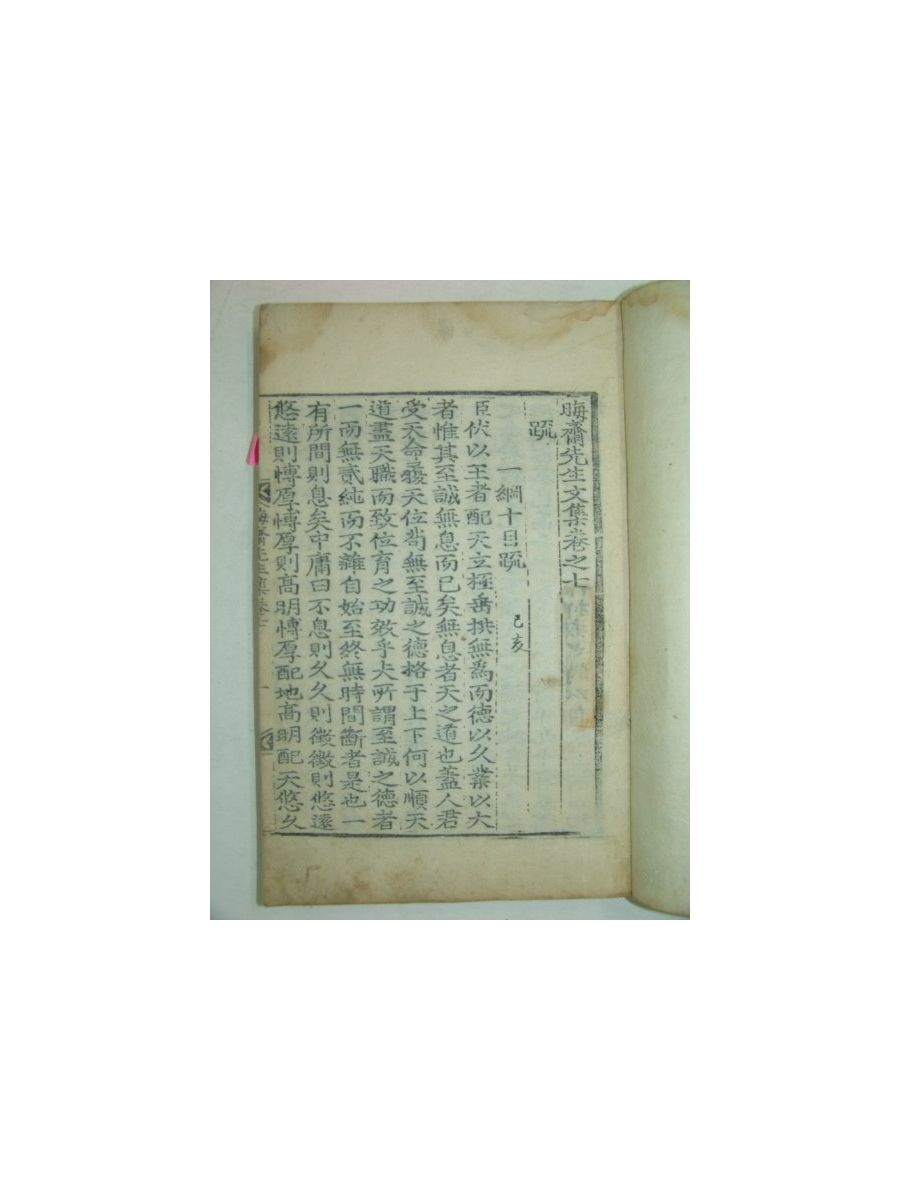 晦齋先生文集卷之七
疏
一綱十目疏 己亥
臣伏以王者配天立極垂拱無爲而德以久業以大
者惟其至誠無息而已矣無息者天之道也蓋人君
受天命履天位苟無至誠之德格于上下何以順天
道盡天職而致位育之功效乎夫所謂至誠之德者
一而無貳純而不雜自始至終無時間斷者是也一
有所間則息矣中庸曰不息則久久則徵徵則悠遠
悠遠則博厚博厚則高明博厚配地高明配天悠久
晦齋先生集卷七 一